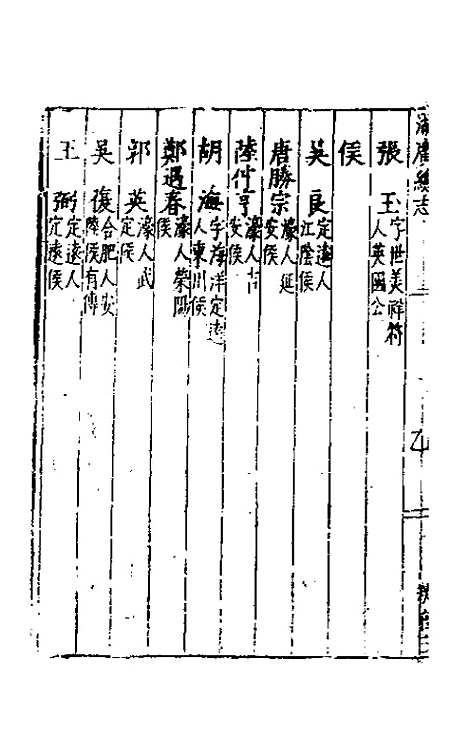 張玉 字世美祥符人英國公
侯
吳良 定遠人江陰侯
唐勝宗 濠人延安侯
陸仲亨 濠人吉安侯
胡海 字海洋定遠人東川侯
鄭遇春 濠人滎陽侯
郭英 濠人武定侯
吳復 合肥人安陸侯有傳
王弼 定遠人定遠侯